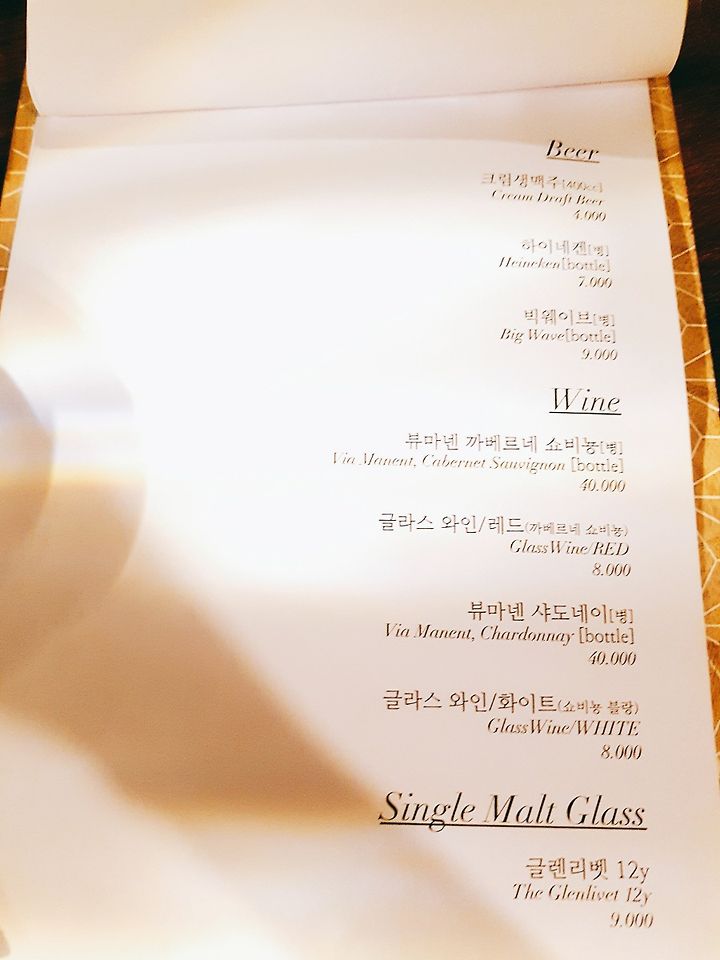 Beer
크림생맥주[400cc]
Cream Draft Beer
4.000
하이네켄[병]
Heineken[bottle]
7.000
빅웨이브[병]
Big Wave[bottle]
9.000
Wine
뷰마넨 까베르네 쇼비뇽[병]
Via Manent, Cabernet Sauvignon [bottle]
40.000
글라스 와인/레드(까베르네 쇼비뇽)
GlassWine/RED
8.000
뷰마넨 샤도네이[병]
Via Manent, Chardonnay [bottle]
40.000
글라스 와인/화이트(쇼비뇽 블랑)
GlassWine/WHITE
8.000
Single Malt Glass
글렌리벳 12y
The Glenlivet 12y
9.000